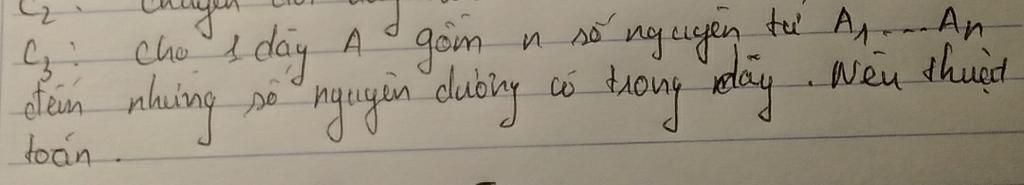 C2: chuyển
C3: Cho 1 dãy A gồm n số nguyên từ A1....An
đếm những số nguyên dương có trong dãy. Nêu thuật
toán.